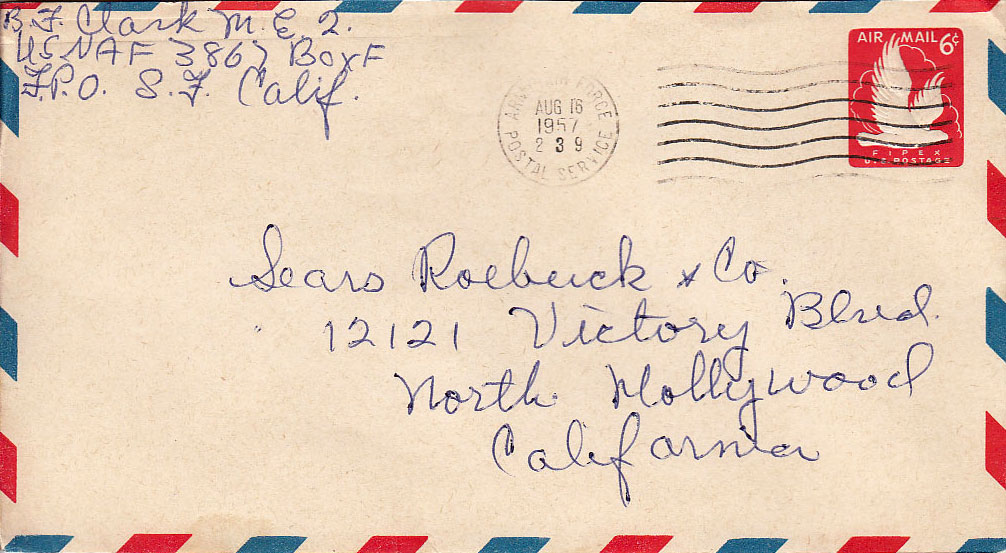 B. F. Clark M. E. 2.
USNAF 3867 Box F
F.P.O. S. F. Calif.
AIR FORCE
POSTAL SERVICE
AUG 16
1957
2 3 9
AIR MAIL 6¢
FIPEX
U.S. POSTAGE
Sears Roebuck & Co.
12121 Victory Blvd.
North Hollywood
California